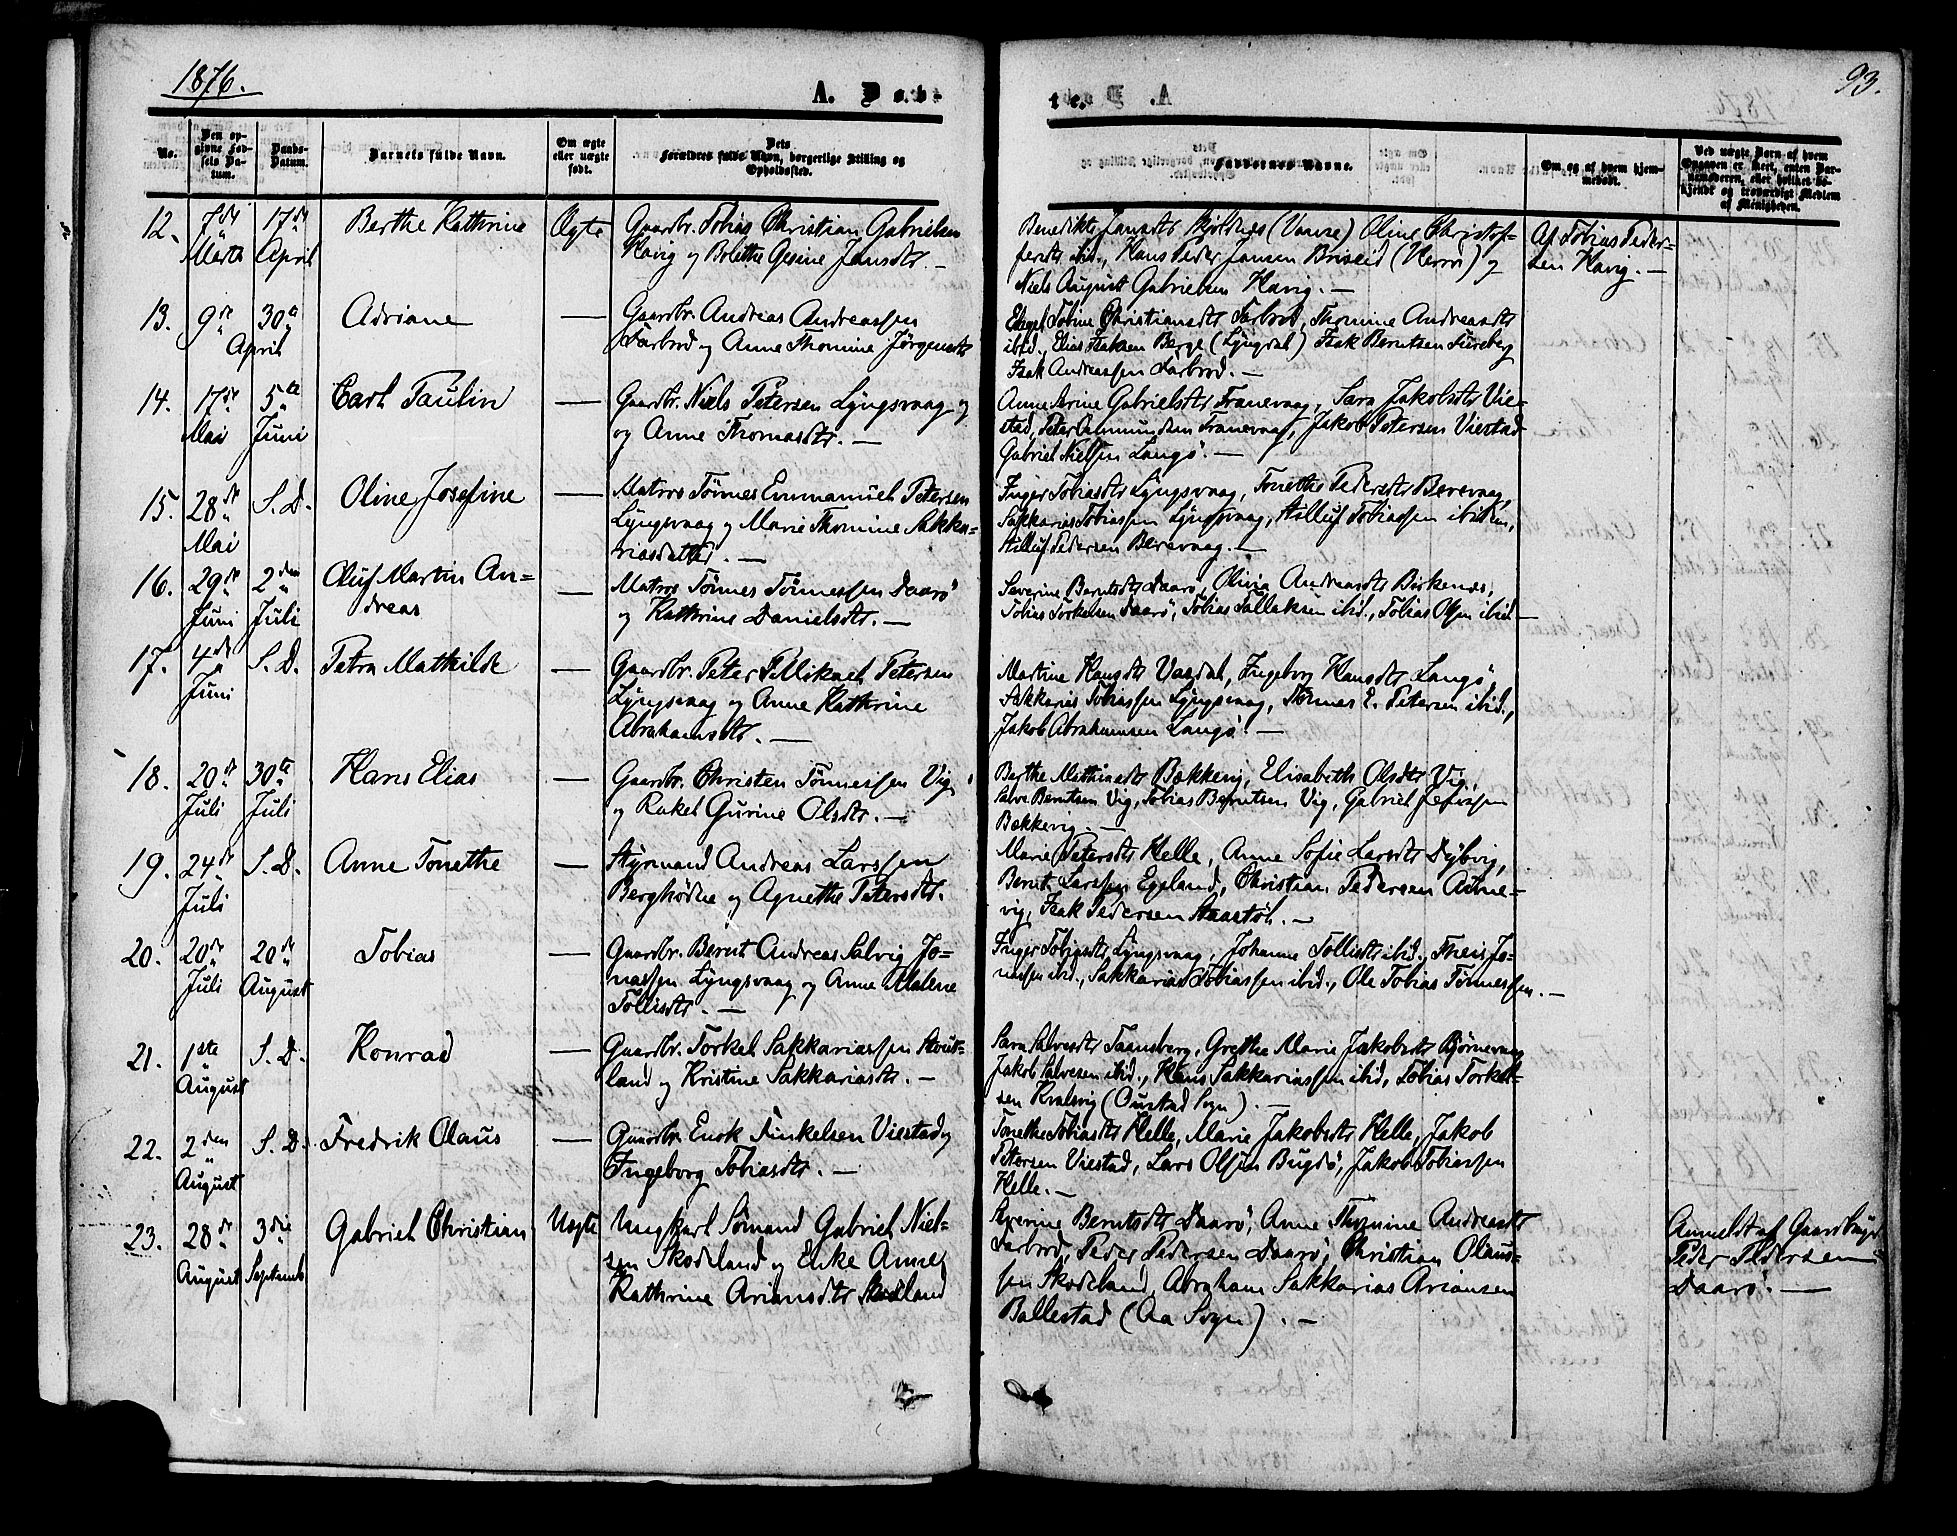 1876.
A. Døb-
te.
93.
No.
Den op-
givne Fød-
sels Da-
tum.
Daabs-
Datum.
Barnets fulde Navn.
Om ægte
eller uægte
født.
Dets
Forældres fulde Navn, borgerlige Stilling og
Opholdssted.
Faddernes Navne.
Om og af hvem hjem-
medøbt.
Ved uægte Børn af hvem
Opgaven er skeet, enten Bar-
nemoderen, eller hvilket be-
kjendt og troværdigt Medlem
af Menigheden.
12. 7de Marts 17de April Berthe Kathrine Ægte
Gaardbr. Tobias Christian Gabrielsen
Havig og Bolette Gesine Jansdtr. —
Benedikte Jansdtr Skjoldnes (Vanse) Oline Christof-
fersdtr ibid., Hans Peder Jansen Briseid (Herrø) og
Niels August Gabrielsen Havig. —
Af Tobias Peder-
sen Havig. —
13. 9de 30te April Adriane —
Gaardbr. Andreas Andreassen
Farbrod og Anne Thomine Jørgensdtr
Tobine Christiansdtr Farbrod, Thomine Andreasdtr
ibid., Elias Isaksen Berge (Lyngdal) Isak Berntsen
Isak Andreassen Farbrod. —
14. 17de Mai 5te Juni Carl Paulin —
Gaardbr. Niels Petersen Lyngsvaag og
og Anne Thomasdtr. —
Anne Serine Gabrielsdtr Tranevaag, Sara Jakobsdtr Vie-
stad, Peter Aanmundsen Tranevaag, Jakob Petersen Viestad
Gabriel Nielsen Langø. —
15. 28de Mai S. D. Oline Josefine —
Matros Tønnes Emmanuel Petersen
Lyngsvaag og Marie Thomine Sakka-
riasdatter. —
Inger Tobiasdtr Lyngsvaag, Tonethe Pedersdtr Berevaag,
Sakkarias Tobiassen Lyngsvaag, Ailluf Tobiassen ibidem,
Ailluf Pedersen Berevaag. —
16. 29de Juni 2den Juli Oluf Martin An-
dreas —
Matros Tønnes Tønnessen Daarø
og Kathrine Danielsdtr. —
Severine Berntsdtr Daarø, Olivia Andreasdtr Birkenes,
Tobias Torkelsen Daarø, Tobias Tallaksen ibid., Tobias Olsen ibid. —
17. 4de Juni S. D. Petra Mathilde —
Gaardbr. Peter Mikael Petersen
Lyngsvaag og Anne Kathrine
Abrahamsdtr. —
Martine Hansdtr Vasdal, Ingeborg Hansdtr Langø,
Sakkarias Tobiassen Lyngsvaag, Tønnes E. Petersen ibid.,
Jakob Abrahamsen Langø. —
18. 20de Juli 30te Juli Hans Elias —
Gaardbr. Christen Tønnessen Vig
og Rakel Gurine Olsdtr. —
Berthe Mathiasdtr Bækkevig, Elisabeth Olsdtr Vig,
Salve Berntsen Vig, Tobias Berntsen Vig, Gabriel
Bækkevig. —
19. 24de Juli S. D. Anne Tonethe —
Styrmand Andreas Larssen
Berghødne og Agnethe Petersdtr.
Marie Petersdtr Helle, Anne Sofie Larsdtr Dybvig,
Bernt Larssen Egeland, Christian Pedersen Asne-
vig, Isak Pedersen Staastøl. —
20. 20de Juli 20de August Tobias —
Gaardbr. Bernt Andreas Salvig Jo-
nassen Lyngsvaag og Anne Malene
Tollisdtr. —
Inger Tobiasdtr Lyngsvaag, Johanne Tollisdtr ibid., Theis Jo-
nassen ibid., Sakkarias Tobiassen ibid., Ole Tobias Tønnessen. —
21. 1ste August S. D. Konrad —
Gaardbr. Torkel Sakkariassen Stout-
land og Kristine Sakkariasdtr. —
Sara Salvesdtr Taansberg, Grethe Marie Jakobsdtr Bjørnevaag
Jakob Salvesen ibid., Hans Sakkariassen ibid., Tobias Torkel-
sen Kvalsvig (Oustad Sogn). —
22. 2den August S. D. Fredrik Olaus —
Gaardbr. Enok Tinkelsen Viestad og
Ingeborg Tobiasdtr. —
Tonethe Tobiasdtr Helle, Marie Jakobsdtr Helle, Jakob
Petersen Viestad, Lars Olsen Bugdø, Jakob Tobiassen
Helle. —
23. 28de August 3die Septemb Gabriel Christian Uægte
Ungkarl Sømand Gabriel Niel-
sen Skodeland og Enke Anne
Kathrine Ariansdtr Skodeland
Severine Berntsdtr Daarø, Anne Thomine Andreasdtr
Farbrod, Peder Pedersen Daarø, Christian Olaus-
sen Skodeland, Abraham Sakkarias Ariansen
Ballestad (Aa Sogn). —
Anmeldt af Gaardbruger
Peder Pedersen
Daarø. —